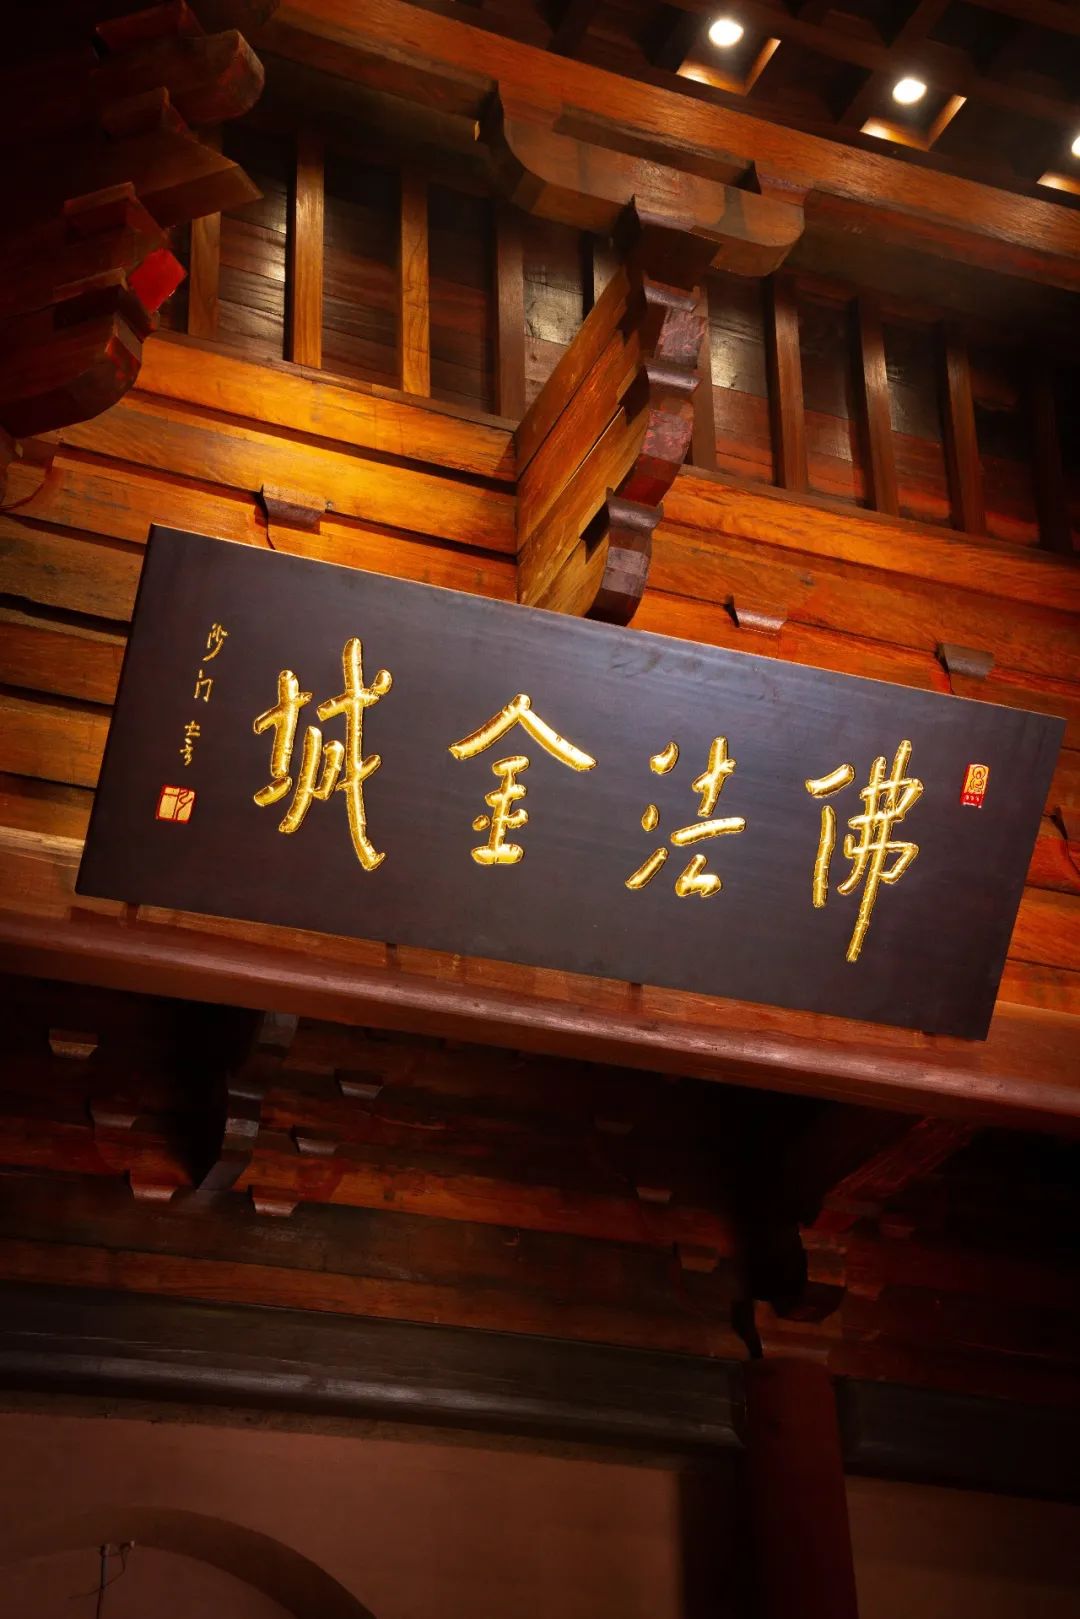 佛法金城
沙门